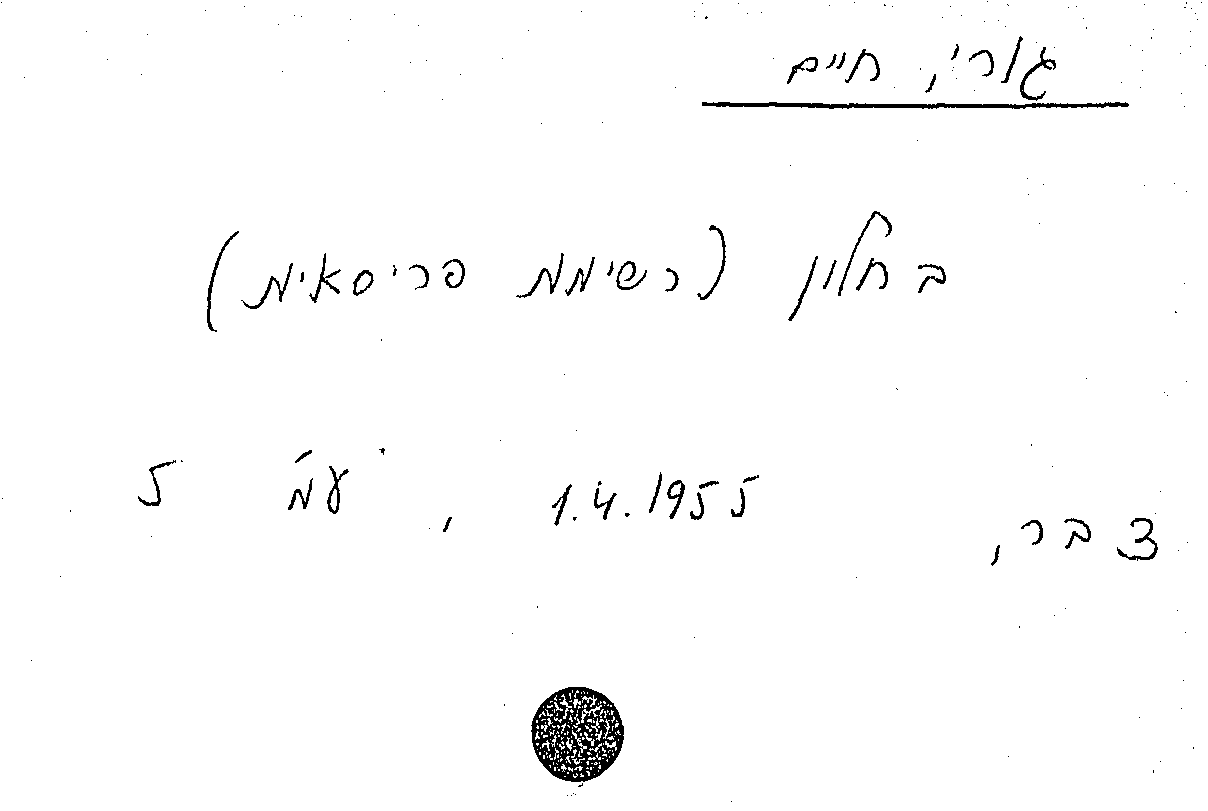 גורי, חיים
בחלון (רשימת פריסאית)
צבר, 1.4.1955, עמ' 5